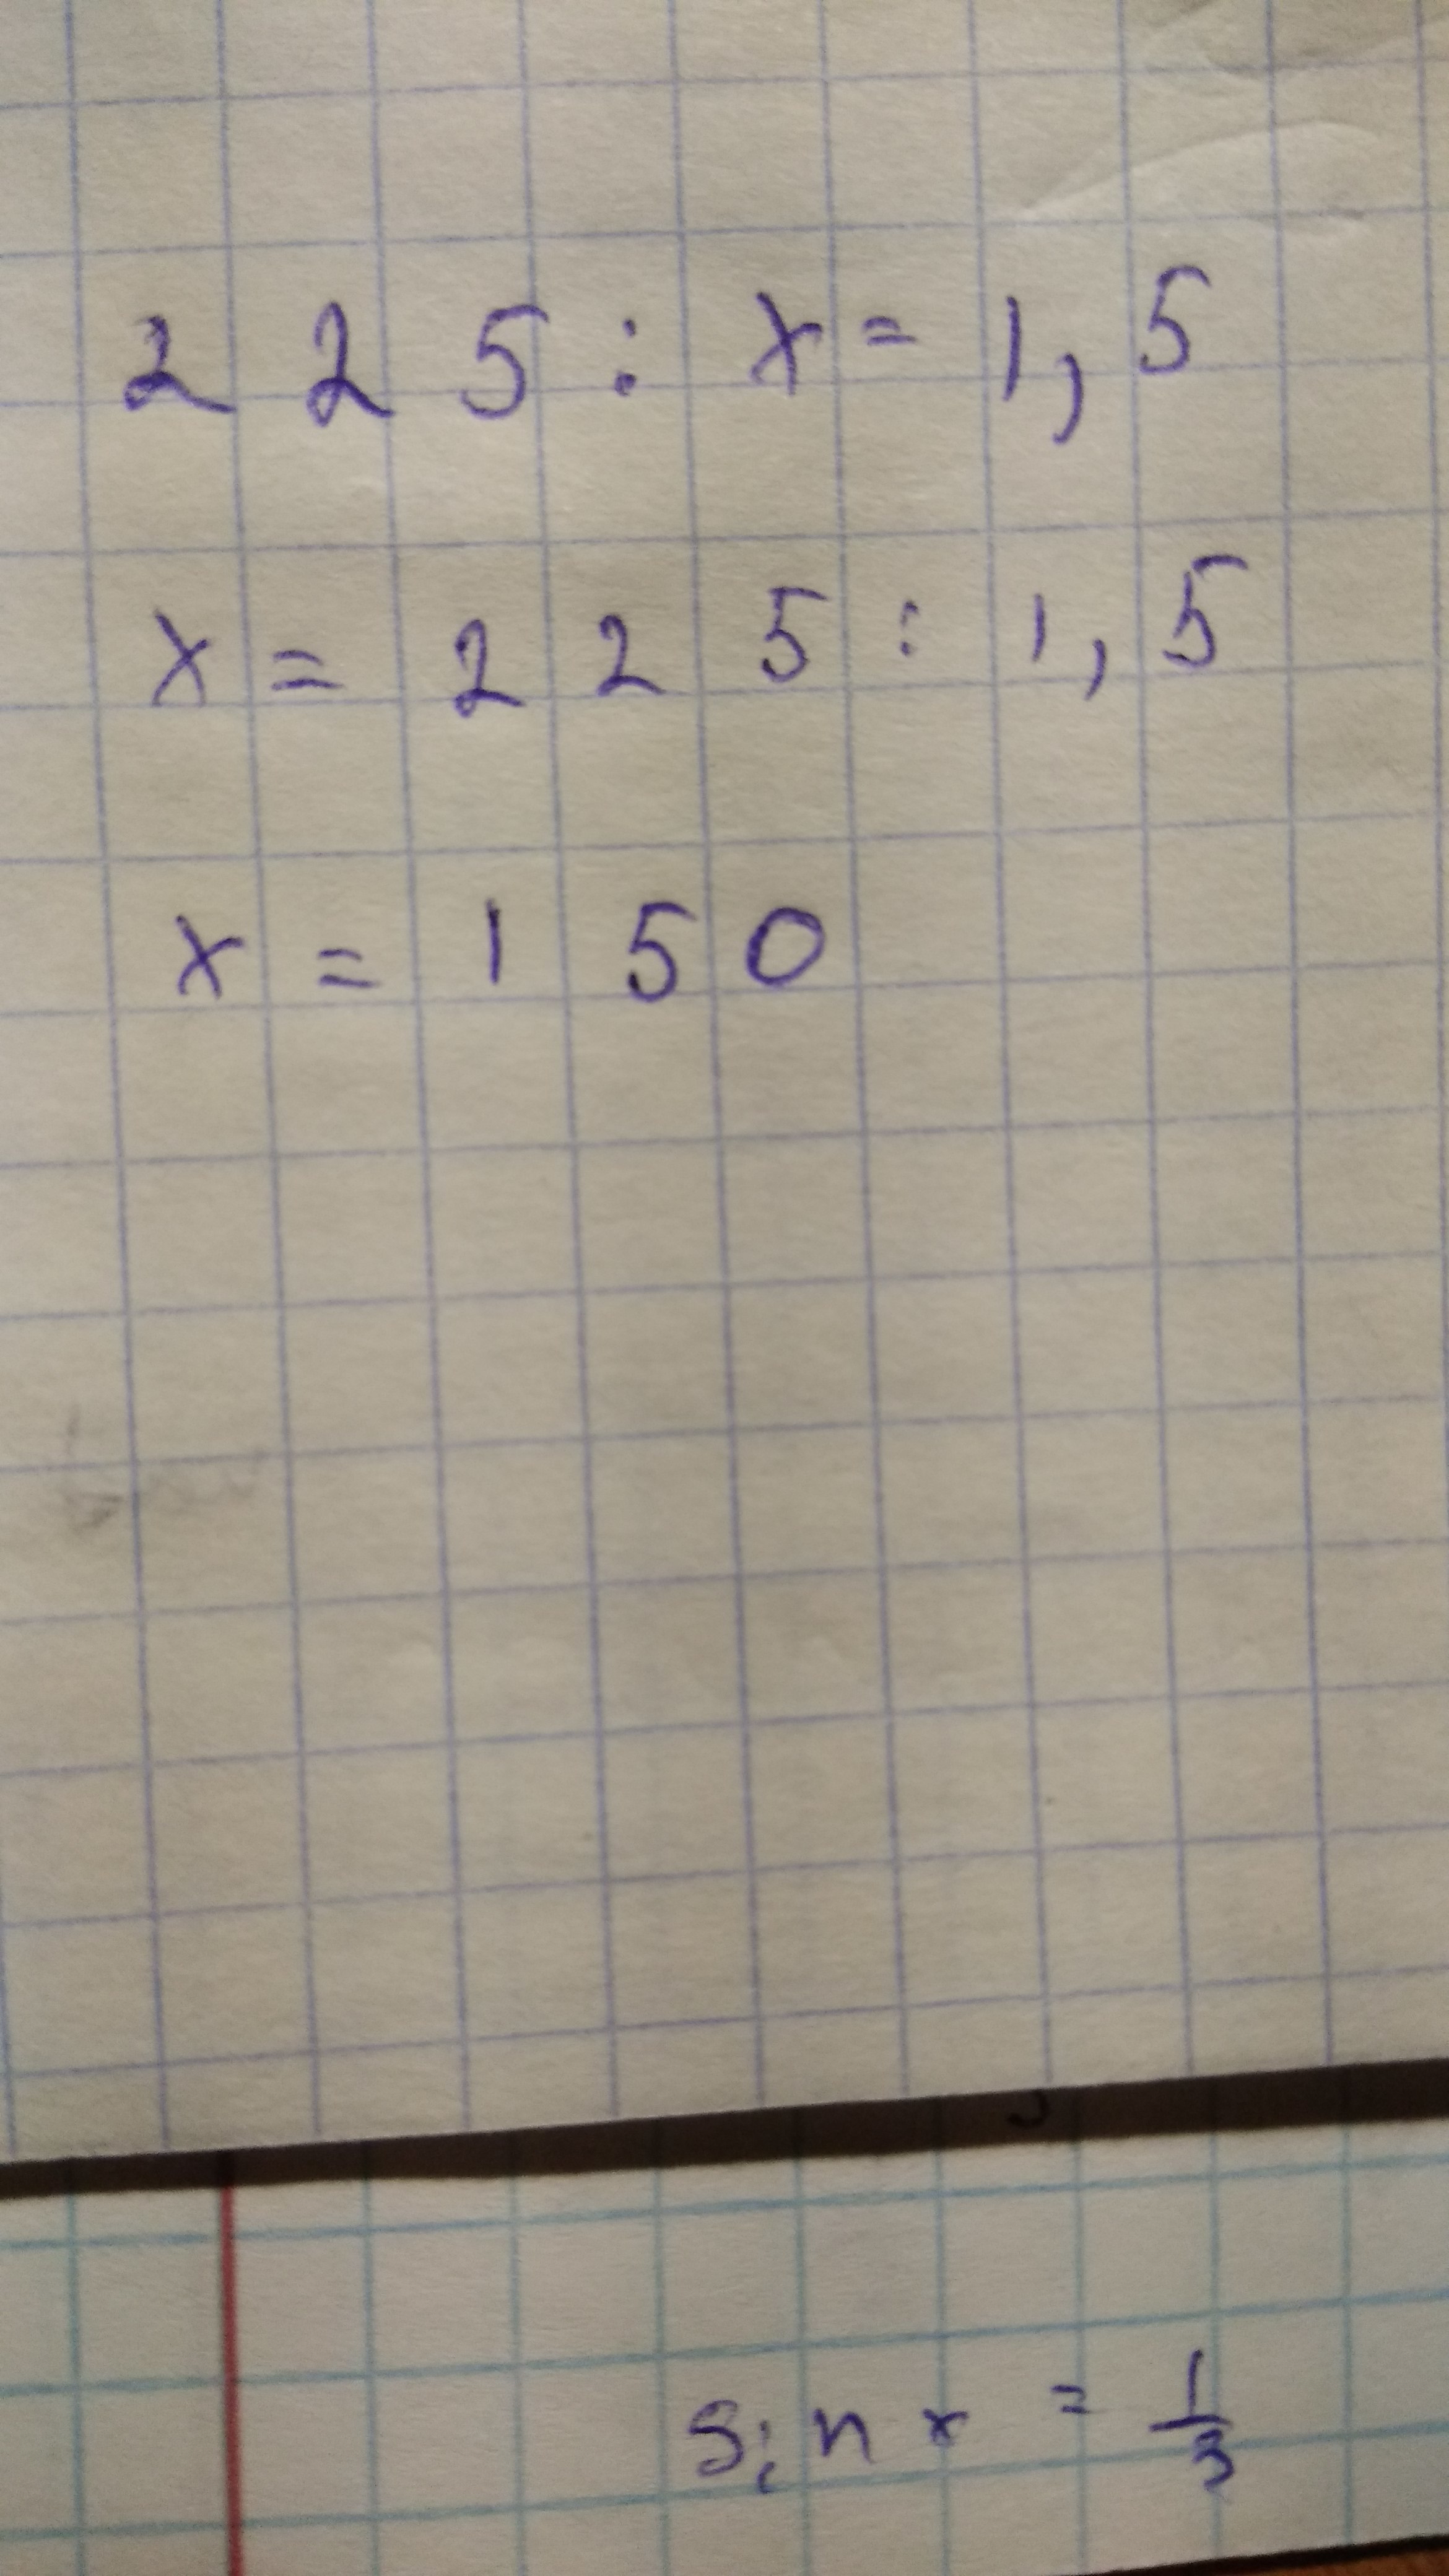 225 : x = 1,5
x = 225 : 1,5
x = 150
sin x = 1/3